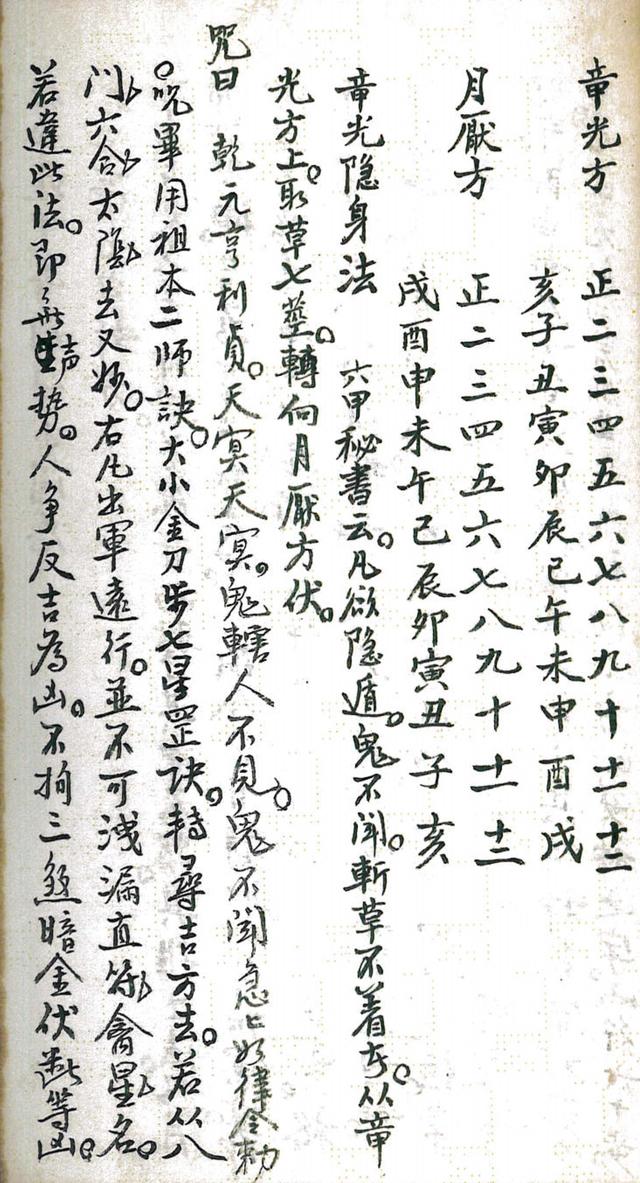 章光方　正二三四五六七八九十十一十二
亥子丑寅卯辰巳午未申酉戌
月厭方　正二三四五六七八九十十一十二
戌酉申未午巳辰卯寅丑子亥
章光隐身法　六甲秘書云。凡欲隐遁。鬼不闻。斬草不着方。从章
光方上。取草七莖。轉向月厭方伏。
咒曰　乾元亨利貞。天冥天冥。鬼轄人不見。鬼不闻急〻如律令勅
。咒畢用祖本二師訣。大小金刀步七星罡訣。轉尋吉方去。若从八
门六合太陰去又妙。右凡出軍遠行。並不可洩漏直符禽星名。
若違此法。即無聲势。人争反吉為凶。不拘三煞暗金伏断等凶。